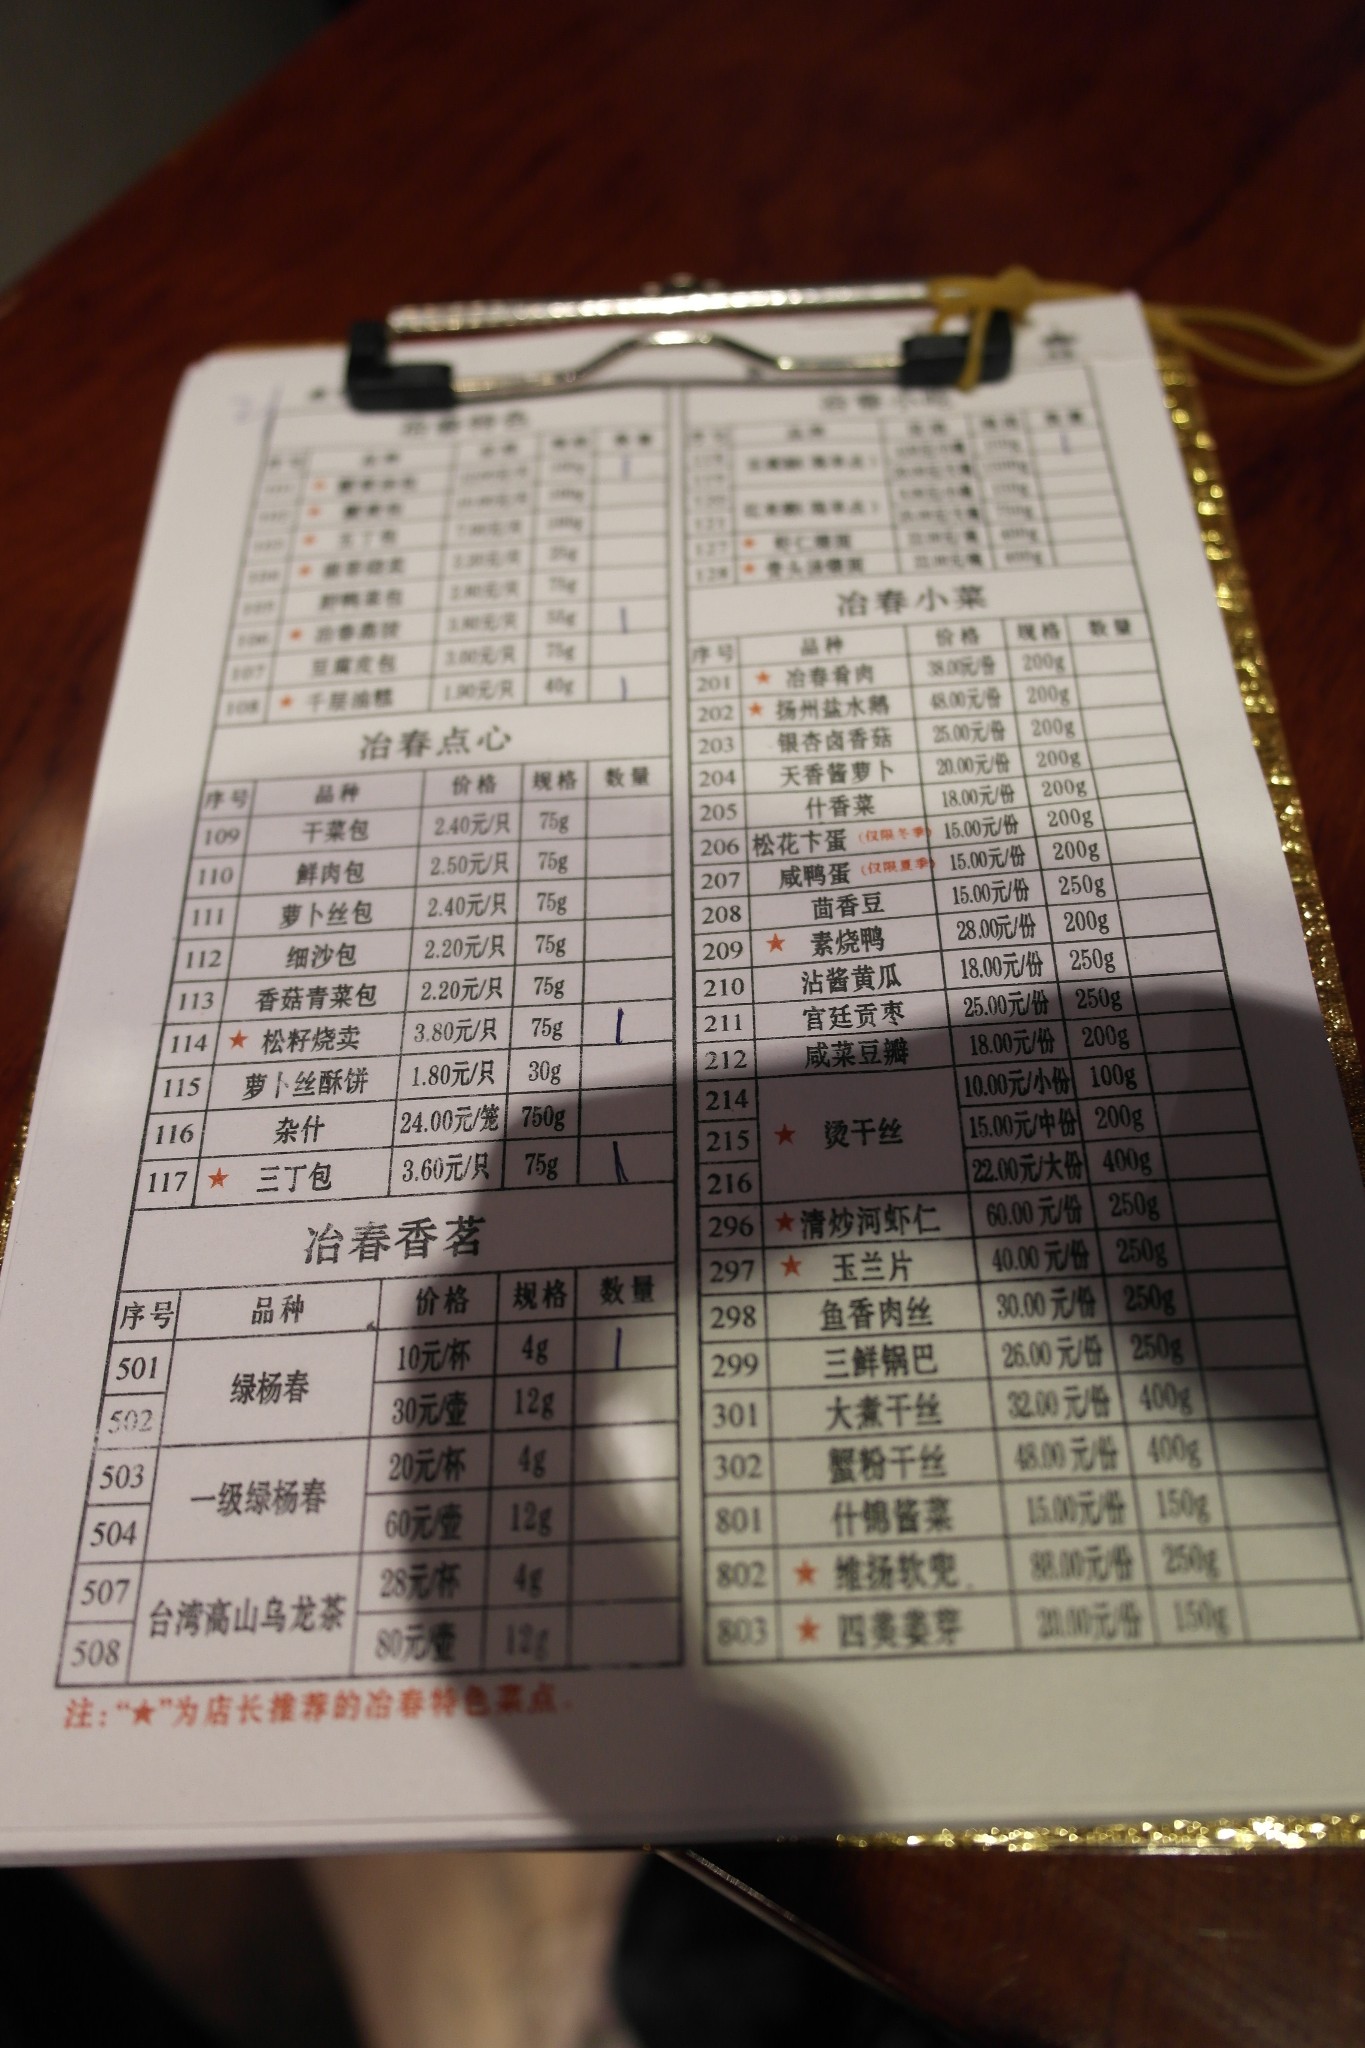 序号 品种 价格 规格 数量
106 ★ 冶春蒸饺 3.80元/只 55g
107 豆腐皮包 3.00元/只 75g
108 ★ 千层油糕 1.90元/只 40g
冶春点心
序号 品种 价格 规格 数量
109 干菜包 2.40元/只 75g
110 鲜肉包 2.50元/只 75g
111 萝卜丝包 2.40元/只 75g
112 细沙包 2.20元/只 75g
113 香菇青菜包 2.20元/只 75g
114 ★ 松籽烧卖 3.80元/只 75g
115 萝卜丝酥饼 1.80元/只 30g
116 杂什 24.00元/笼 750g
117 ★ 三丁包 3.60元/只 75g
冶春香茗
序号 品种 价格 规格 数量
501 绿杨春 10元/杯 4g
502 30元/壶 12g
503 一级绿杨春 20元/杯 4g
504 60元/壶 12g
507 台湾高山乌龙茶 28元/杯 4g
508 80元/壶 12g
注:“★”为店长推荐的冶春特色菜点.
冶春小菜
序号 品种 价格 规格 数量
201 ★ 冶春肴肉 38.00元/份 200g
202 ★ 扬州盐水鹅 48.00元/份 200g
203 银杏卤香菇 25.00元/份 200g
204 天香酱萝卜 20.00元/份 200g
205 什香菜 18.00元/份 200g
206 松花卞蛋 (仅限冬季) 15.00元/份 200g
207 咸鸭蛋 (仅限夏季) 15.00元/份 200g
208 茴香豆 15.00元/份 250g
209 ★ 素烧鸭 28.00元/份 200g
210 沾酱黄瓜 18.00元/份 250g
211 宫廷贡枣 25.00元/份 250g
212 咸菜豆瓣 18.00元/份 200g
214 10.00元/小份 100g
215 ★ 烫干丝 15.00元/中份 200g
216 22.00元/大份 400g
296 ★清炒河虾仁 60.00元/份 250g
297 ★ 玉兰片 40.00元/份 250g
298 鱼香肉丝 30.00元/份 250g
299 三鲜锅巴 26.00元/份 250g
301 大煮干丝 32.00元/份 400g
302 蟹粉干丝 48.00元/份 400g
801 什锦酱菜 15.00元/份 150g
802 ★ 维扬软兜 88.00元/份 250g
803 ★ 四美姜芽 20.00元/份 150g